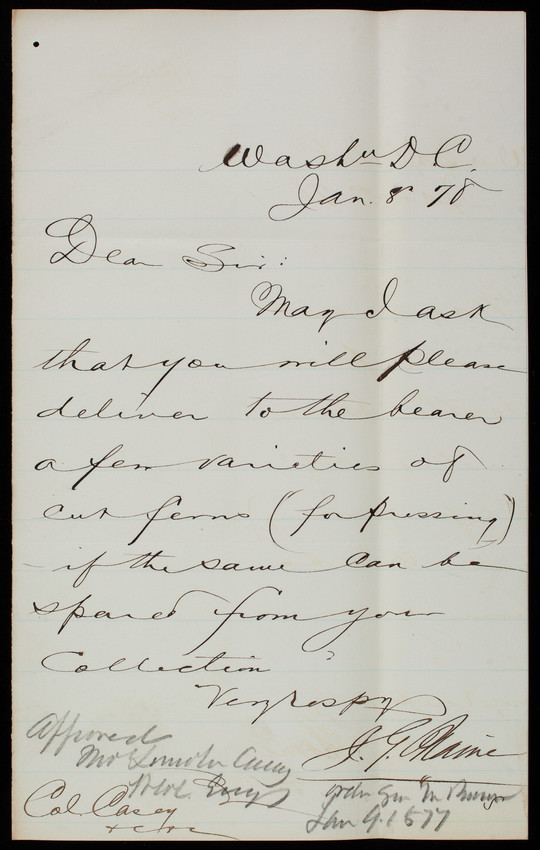 Washn D.C.
Jan. 8" 78
Dear Sir:
May I ask
that you will please
deliver to the bearer
a few varieties of
cut ferns (for pressing)
- if the same can be
spared from your
Collection
Very respy
J. G. Blaine
Approved
Thos Lincoln Casey
Lt Col. Engs
Col. Casey
&c &c
order given
Jan 9. 1877